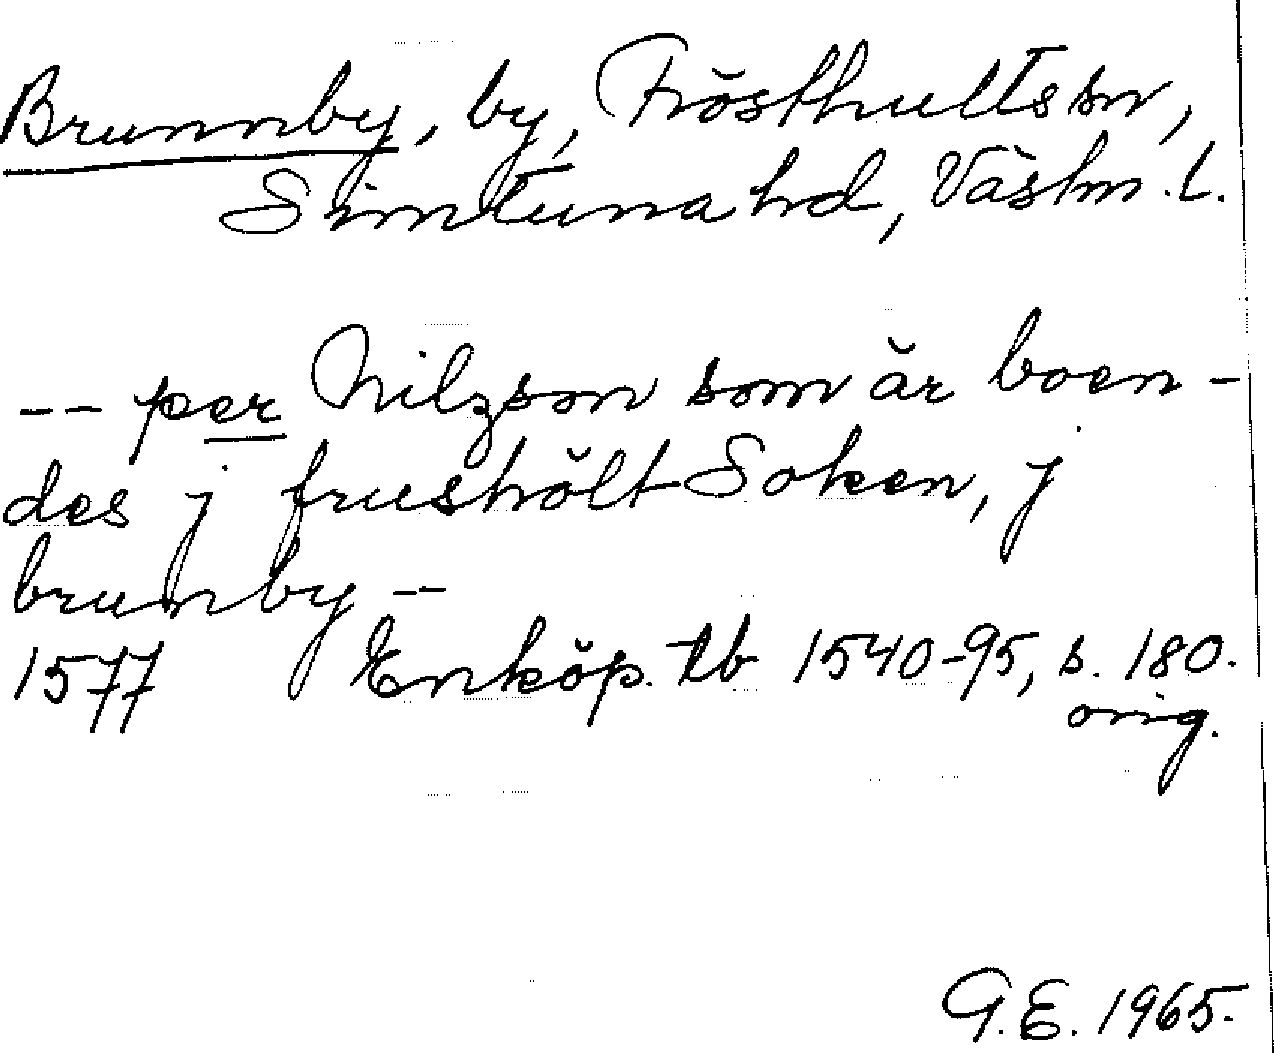 Brunnby, by, Frösthults sn,
Simtuna hd, Västm. l.
-- per Nilzson som är boen-
des j frushölt Soken, j
brunby --
1577 Enköp. tb 1540-95, s. 180.
orig.
G.E. 1965.